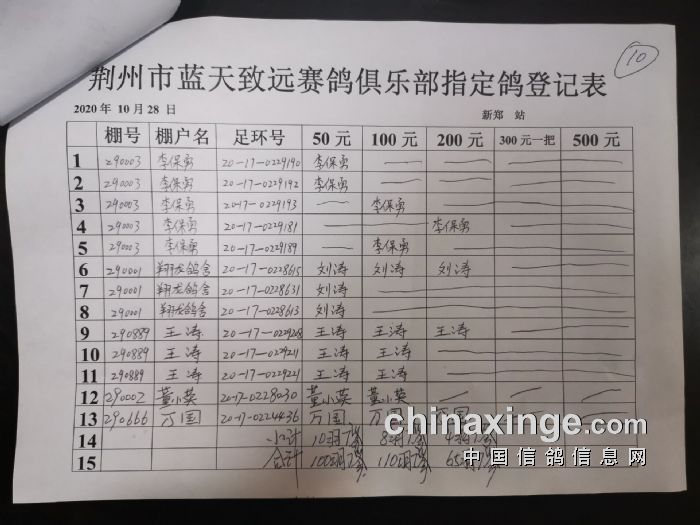 10
荆州市蓝天致远赛鸽俱乐部指定鸽登记表
2020 年 10 月 28 日 新郑 站
棚号 棚户名 足环号 50 元 100 元 200 元 300 元一把 500 元
1 290003 李保勇 20-17-0229190 李保勇
2 290003 李保勇 20-17-0229192 李保勇
3 290003 李保勇 20-17-0229193 李保勇
4 290003 李保勇 20-17-0229181 李保勇
5 290003 李保勇 20-17-0229189 李保勇
6 290001 翔龙鸽舍 20-17-0228615 刘涛 刘涛 刘涛
7 290001 翔龙鸽舍 20-17-0228631 刘涛
8 290001 翔龙鸽舍 20-17-0228613 刘涛
9 290889 王涛 王涛 王涛 王涛
10 290889 王涛 20-17-0229211 王涛 王涛
11 290889 王涛 20-17-0229221 王涛 王涛
12 290002 董小英 20-17-0228030 董小英 董小英
13 290666 万国 20-17-0224436 万国 万国 万国
14 小计 10羽
15 合计 100羽 110羽
chinaxinge.com
中国信鸽信息网